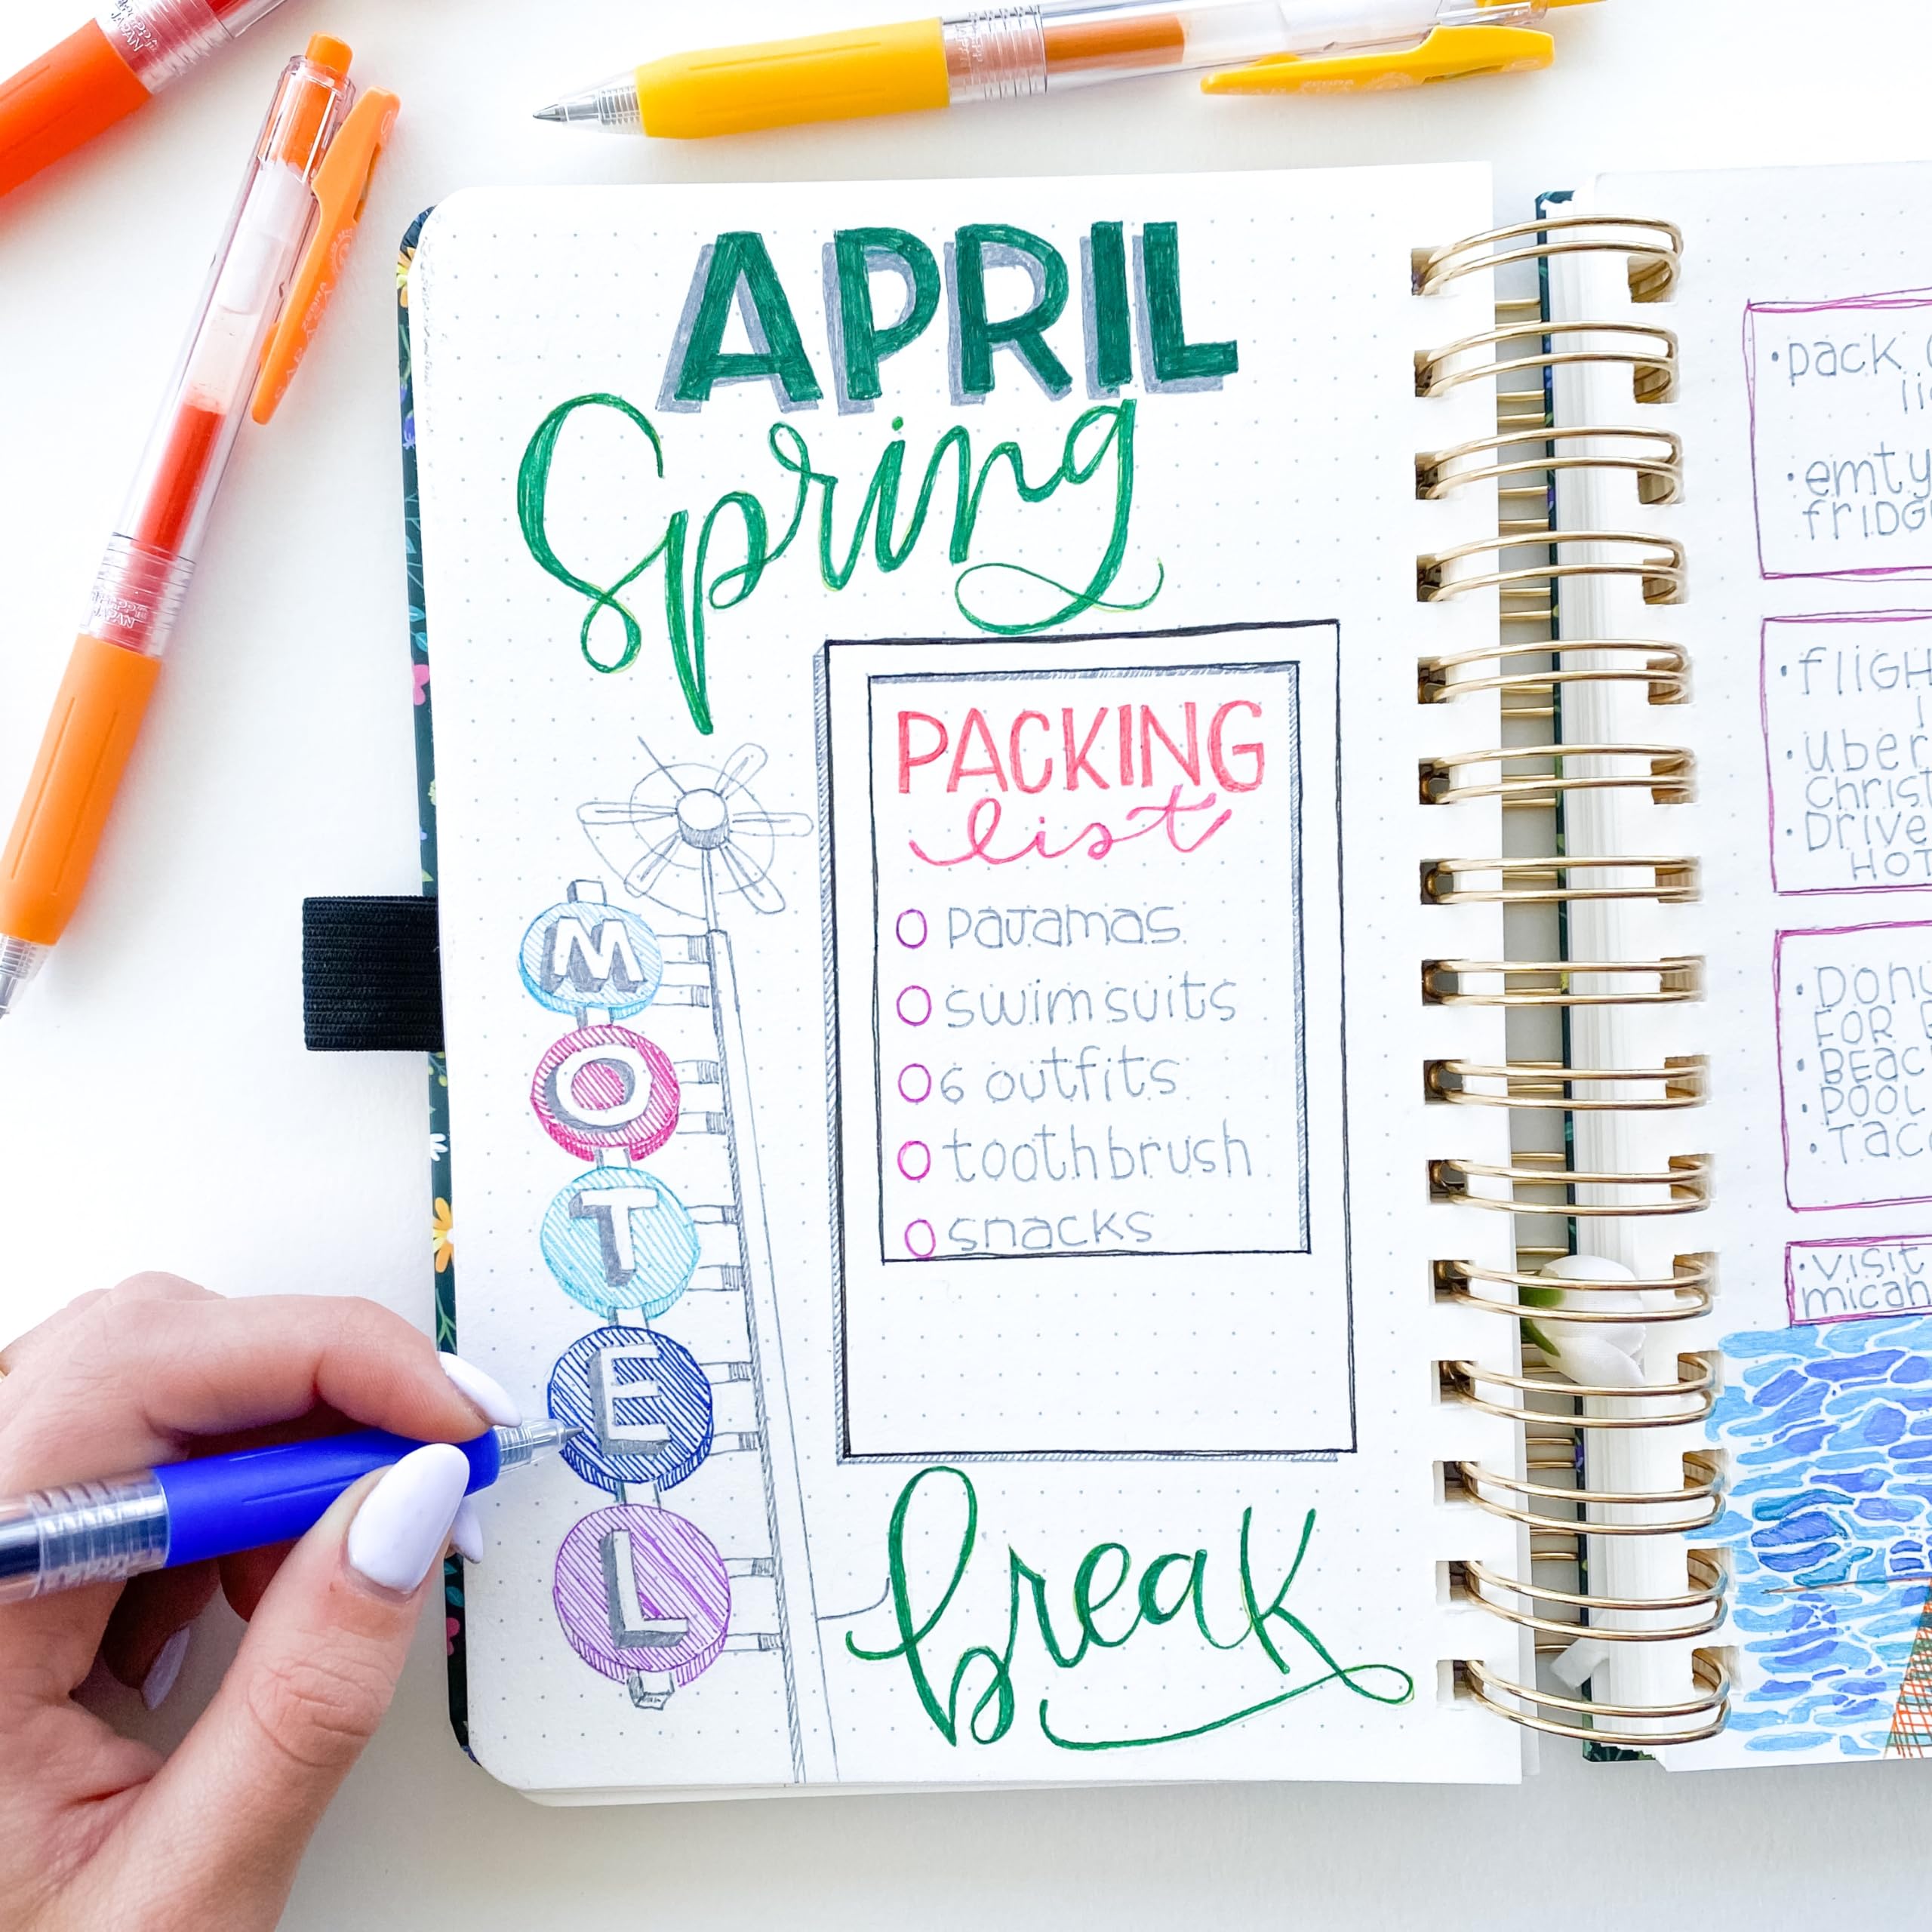 APRIL
Spring
PACKING
list
pajamas
swimsuits
6 outfits
toothbrush
snacks
MOTEL
break
• pack
• emty
fridg
• fligh
• uber
christ
• Drive
HOT
• Donu
FOR
• BEAC
• POOL
• TAC
• visit
micah
JAPAN
JAPAN